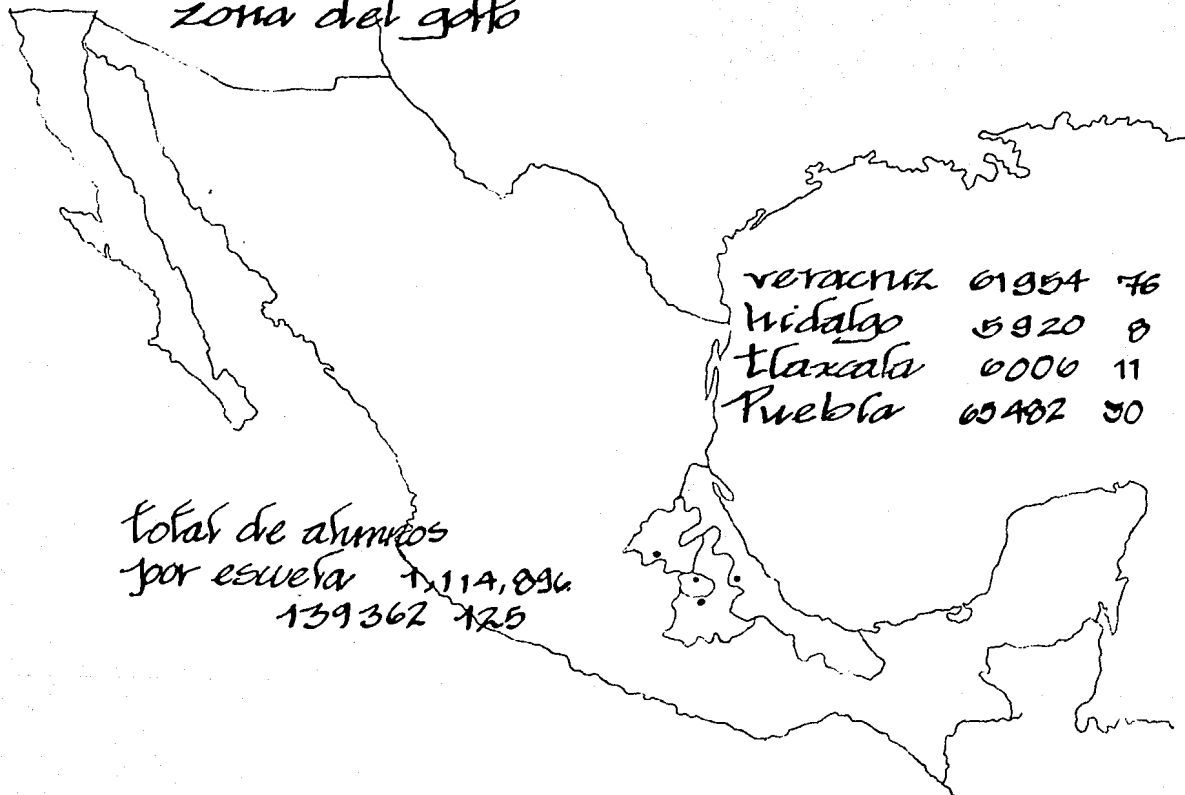 zona del golfo
veracruz 61954 76
hidalgo 5920 8
tlaxcala 6006 11
Puebla 65482 30
total de alumnos
por escuela 1,114,896
139362 125